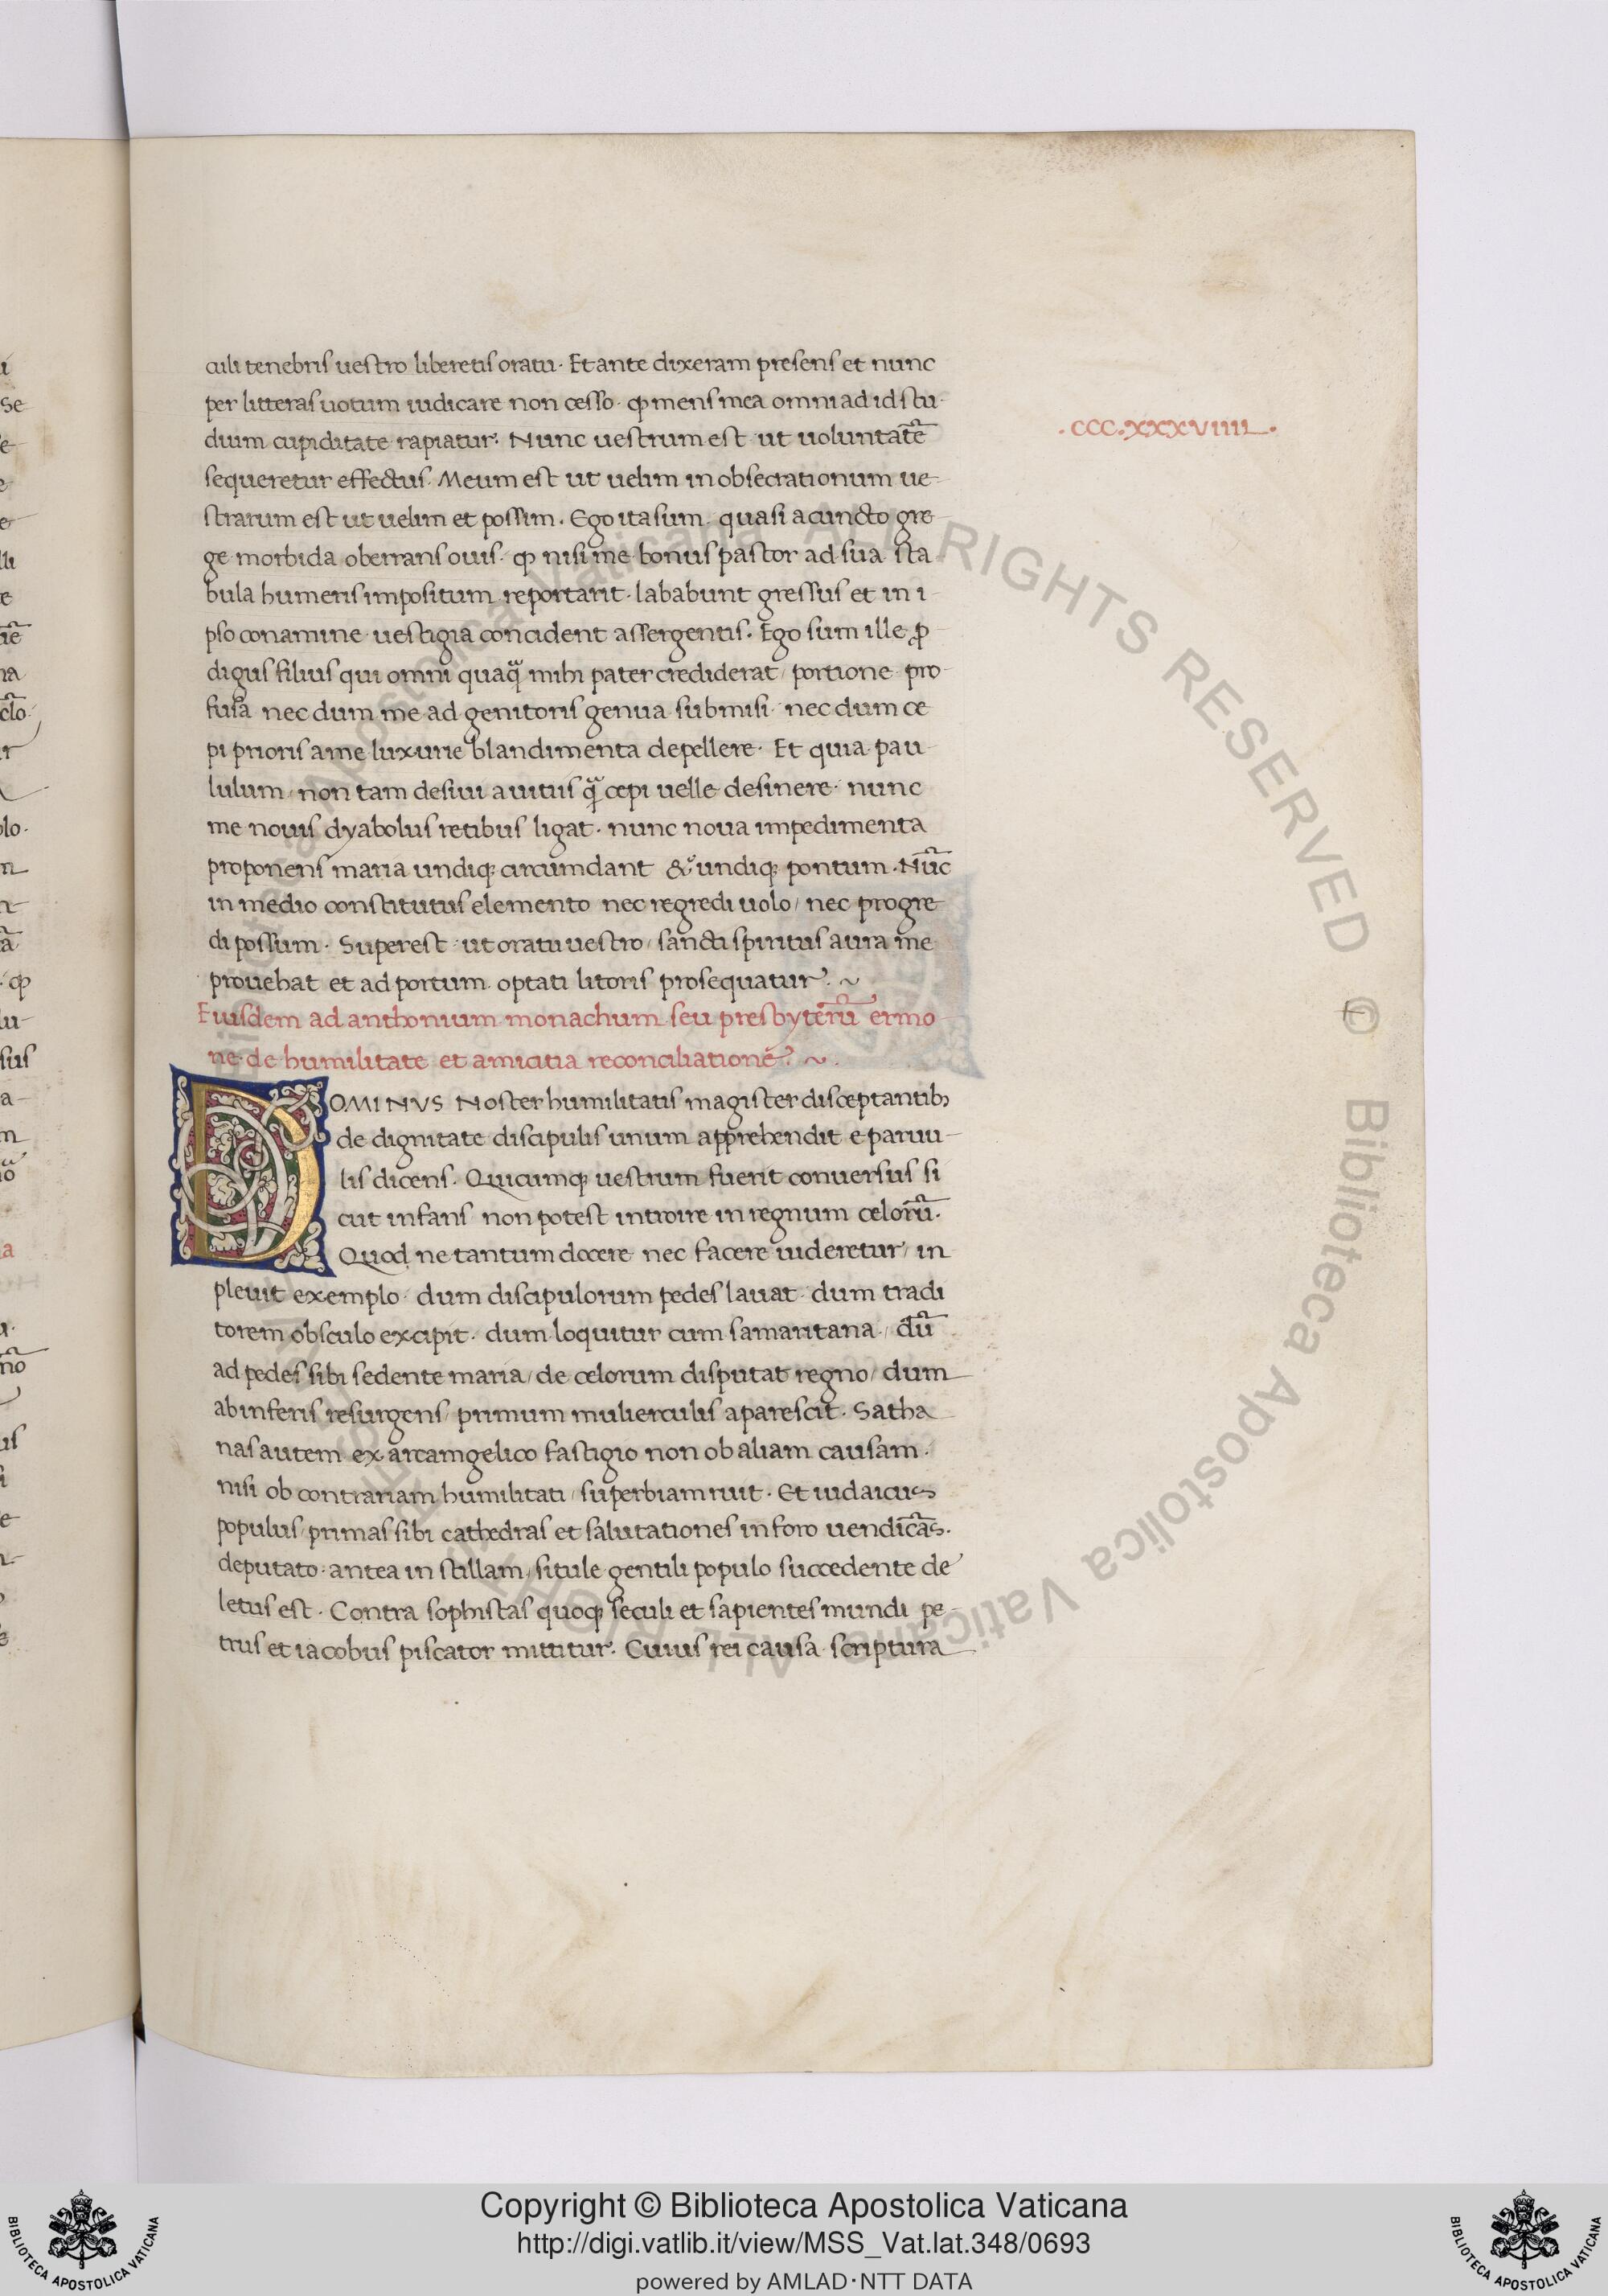 culi tenebris uestro liberetis oratu. Et ante dixeram presens et nunc
per litteras uotum iudicare non cesso. ꝙ mens mea omni ad id stu-
dium cupiditate rapiatur. Nunc uestrum est ut uoluntatē
.CCC.XXXVIIII.
sequeretur effectus. Meum est ut uelim in obsecrationum ue-
strarum est ut uelim et possim. Ego ita sum quasi a cuncto gre-
ge morbida oberrans ouis. ꝙ nisi me bonus pastor ad sua sta
bula humeris impositum reportarit. lababunt gressus et in i-
pso conamine uestigia concident assergentis. Ego sum ille ꝓ
digus filius qui omni quaq̃ mihi pater crediderat / portione pro-
fusa nec dum me ad genitoris genua submisi. nec dum ce
pi prioris a me luxurie blandimenta depellere. Et quia pau-
lulum / non tam desiui a uitiis q̃ cepi uelle desinere. nunc
me nouis dyabolus retibus ligat. nunc noua impedimenta
proponens maria undiqꝫ circumdant & undiqꝫ pontum. Nūc
in medio constitutus elemento nec regredi uolo / nec progre
di possum. Superest ut oratu uestro / sancti spiritus aura me
prouehat et ad portum optati litoris prosequatur. ~
Euisdem ad anthonium monachum seu presbyterū ermo-
ne de humilitate et amicitia reconciliatione. ~.
DOMINVS Noster humilitatis magister disceptantibꝫ
de dignitate discipulis unum apprehendit e paruu-
lis dicens. Quicumqꝫ uestrum fuerit conuersus si
cut infans non potest introire in regnum celorū.
Quod ne tantum docere nec facere uideretur / in
pleuit exemplo. dum discipulorum pedes lauat. dum tradi
torem obsculo excipit. dum loquitur cum samaritana / dū
ad pedes sibi sedente maria / de celorum disputat regno / dum
ab inferis resurgens / primum mulierculis aparescit. Satha
nas autem ex arcamgelico fastigio non ob aliam causam.
nisi ob contrariam humilitati / superbiam ruit. Et iudaicus
populus / primas sibi cathedras et salutationes in foro uendicās.
deputato antea in stillam / situle gentili populo succedente de
letus est. Contra sophistas quoqꝫ seculi et sapientes mundi pe-
trus et iacobus piscator mittitur. Cuius rei causa scriptura
© Biblioteca Apostolica Vaticana ALL RIGHTS RESERVED
Copyright © Biblioteca Apostolica Vaticana
http://digi.vatlib.it/view/MSS_Vat.lat.348/0693
powered by AMLAD・NTT DATA
BIBLIOTECA APOSTOLICA VATICANA
BIBLIOTECA APOSTOLICA VATICANA